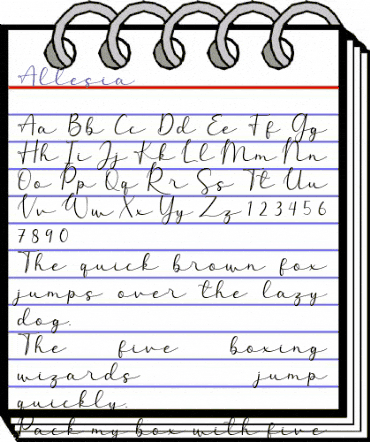 Allesia
Aa Bb Cc Dd Ee Ff Gg
Hh Ii Jj Kk Ll Mm Nn
Oo Pp Qq Rr Ss Tt Uu
Vv Ww Xx Yy Zz 1 2 3 4 5 6
7 8 9 0
The quick brown fox
jumps over the lazy
dog.
The five boxing
wizards jump
quickly.
Pack my box with five